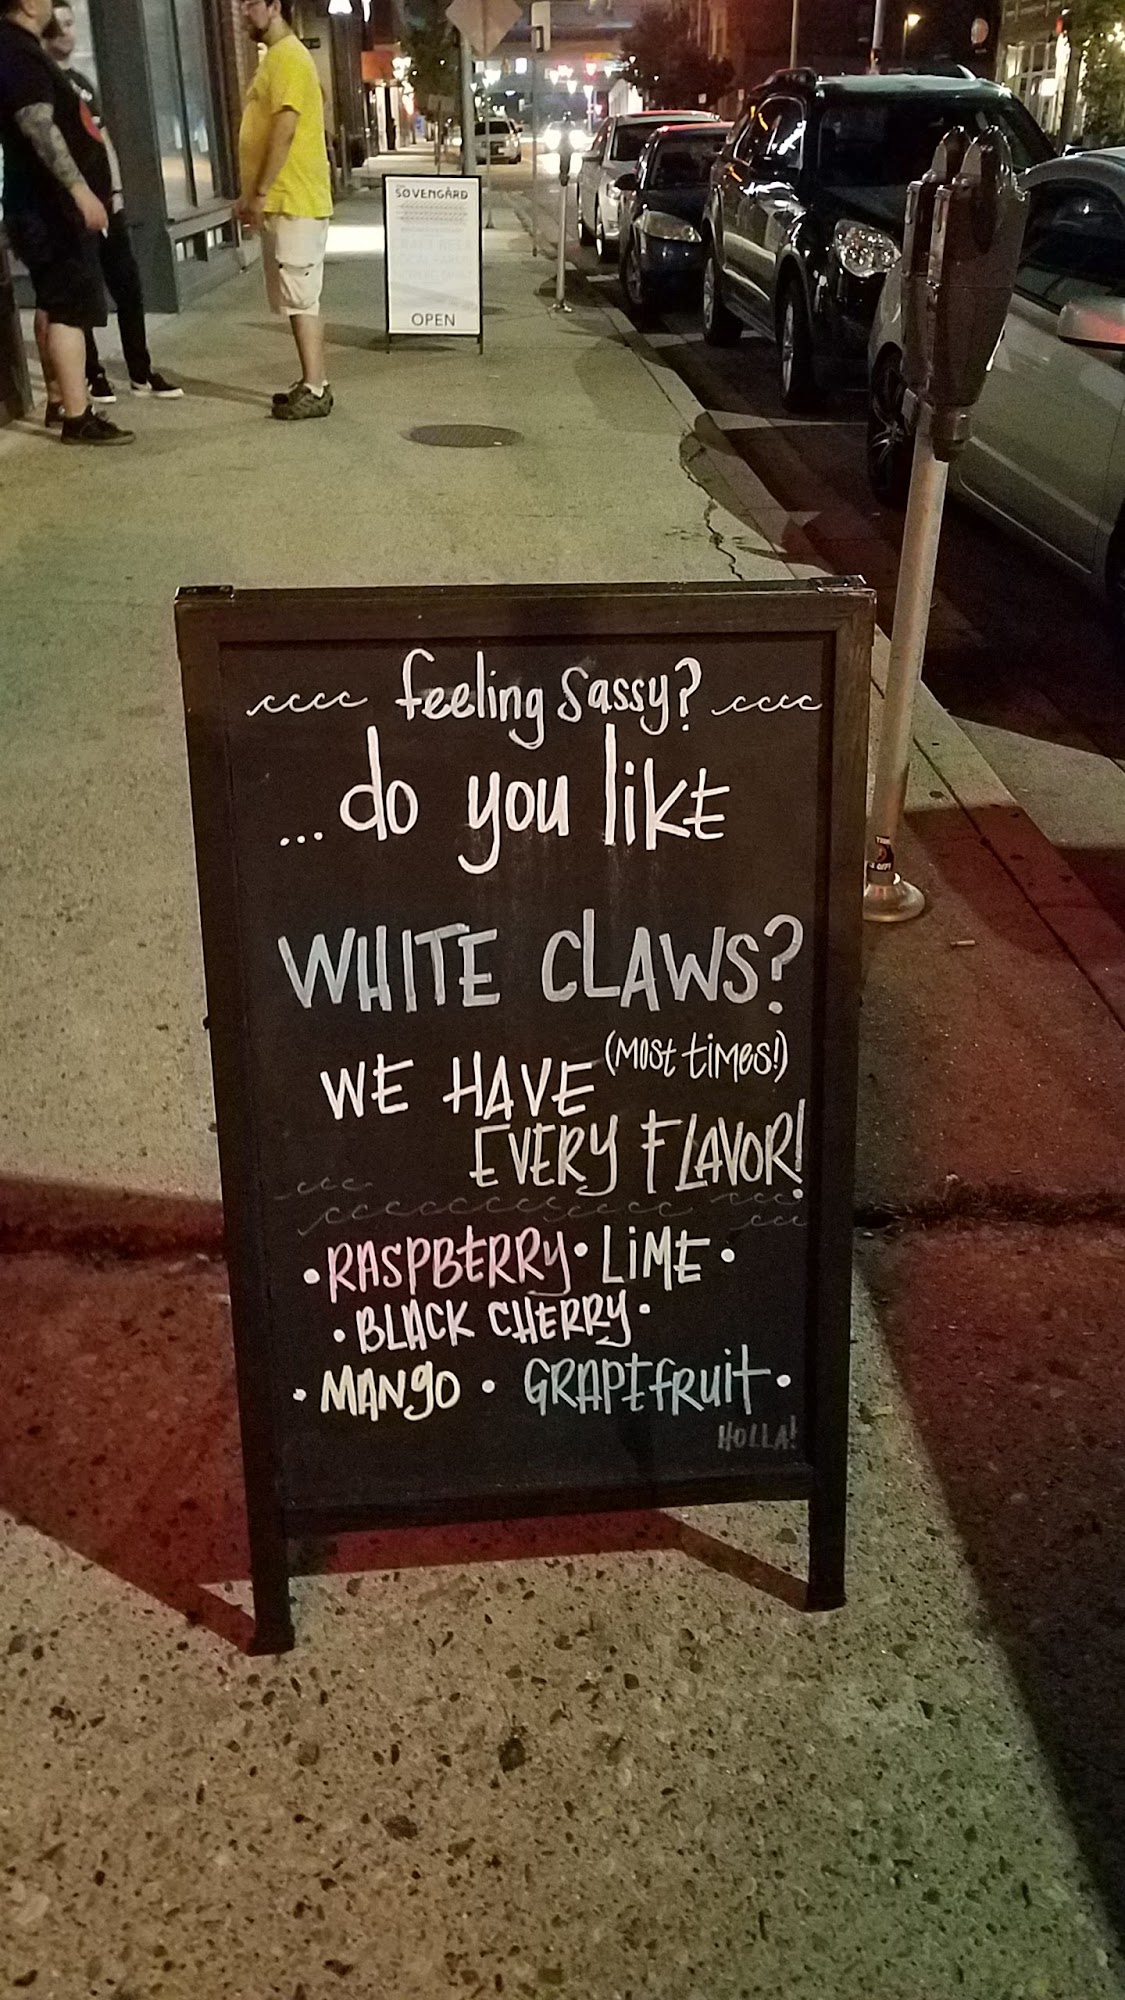 SØVENGÅRD
OPEN
feeling Sassy?
... do you like
WHITE CLAWS?
WE HAVE (MOST times!)
EVERY FLAVOR!
• RASPBERRY • LiME •
• BLACK CHERRY •
• MANgO • GRAPEfRuit •
HOLLA!